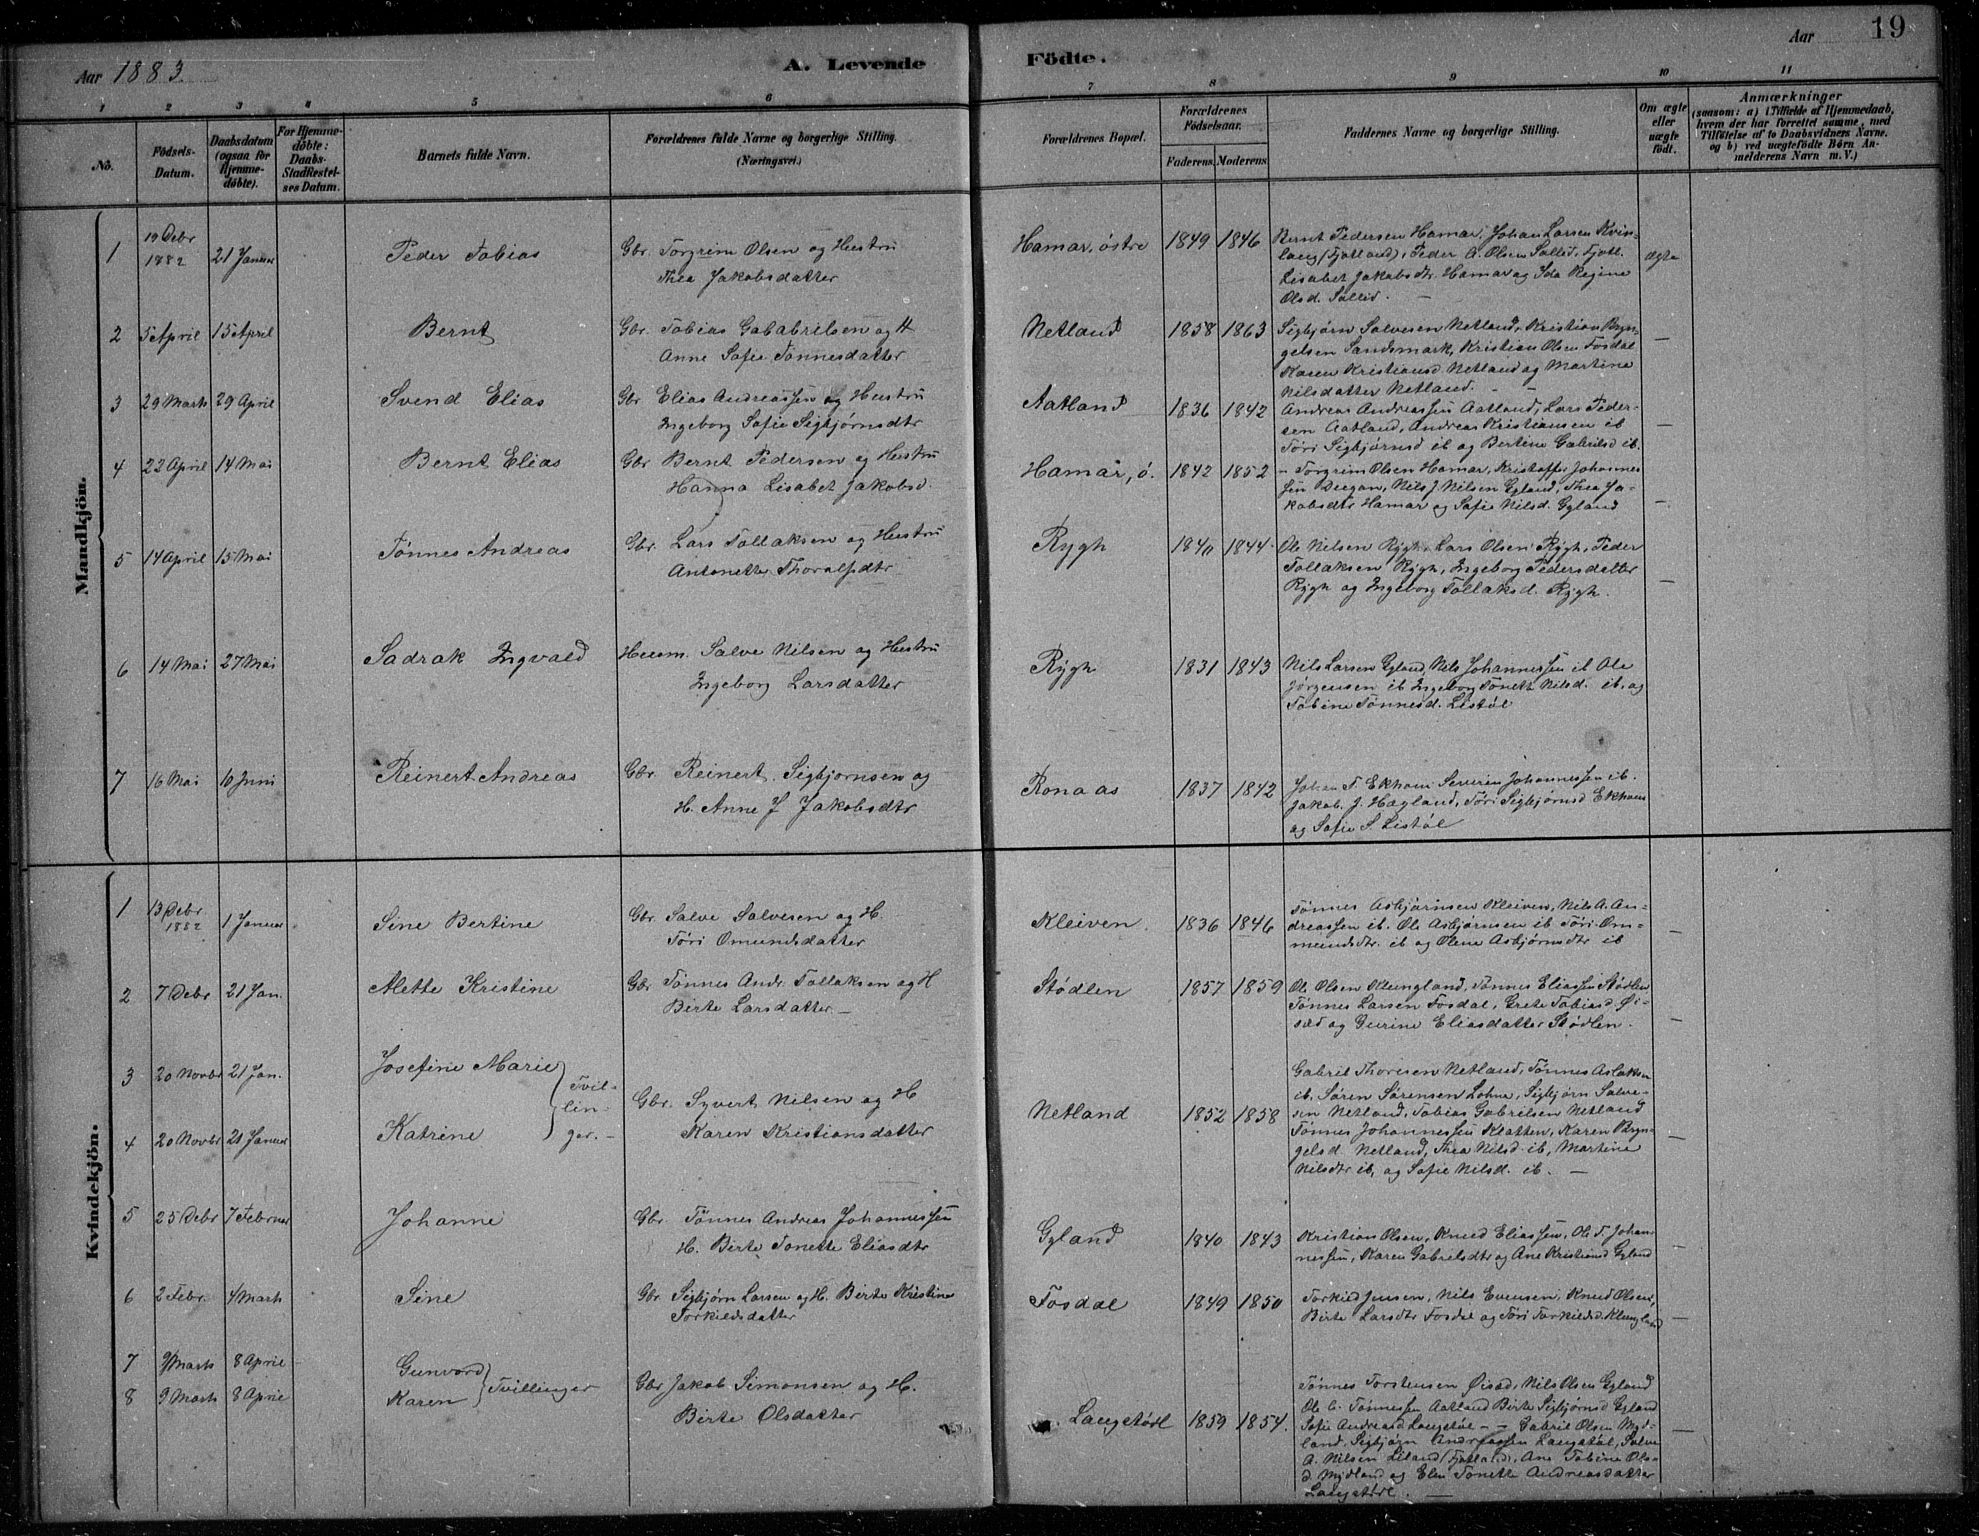 Aar 1883.
A. Levende
Födte.
Aar
19
1
2
3
4
5
6
7
8
9
10
11
No.
Födsels-
Datum.
Daabsdatum
(ogsaa for
Hjemme-
döbte).
For Hjemme-
döbte:
Daabs-
Stadfæstel-
ses Datum.
Barnets fulde Navn.
Forældrenes fulde Navne og borgerlige Stilling.
(Næringsvei.)
Forældrenes Bopæl.
Forældrenes
Födselsaar.
Faderens. Moderens.
Faddernes Navne og borgerlige Stilling.
Om ægte
eller
uægte
födt.
Anmærkninger
(saasom: a) i Tilfælde af Hjemmedaab,
hvem der har forrettet samme, med
Tilföielse af to Daabsvidners Navne.
og b) ved uægtefödte Börn An-
melderens Navn m. V.)
Mandkjön.
1
19 Debr
1882
21 Januar
Peder Tobias
Gbr. Torgrim Olsen og Hustru
Thea Jakobsdatter
Hamar, østre
1849 1846
Bernt Pedersen Hamar, Johan Larsen Kvin-
laug (Fjotland), Peder A. Olsen Sollid, Fjotl.
Lisabet Jakobsdtr. Hamar og Ida Regine
Olsd. Sollid. —
Ægte
2
5 April
15 April
Bernt
Gbr. Tobias Gababrilsen og H
Anne Sofie Tønnesdatter
Netland
1858 1863
Sigbjørn Salvesen Netland, Kristian Bryn-
gelsen Sandsmark, Kristian Olsen Fosdal
Karen Kristiansd Netland og Martine
Nilsdatter Netland. —
—
3
29 Marts
29 April
Svend Elias
Gbr Elias Andreassen og Hustru
Ingeborg Sofie Sigbjørnsdtr
Aatland
1836 1842
Andreas Andreassen Aatland, Lars Peder-
sen Aatland, Andreas Kristiansen ib
Tóri Sigbjørnsd ib og Bertine Gabrilsd ib.
—
4
22 April
14 Mai
Bernt Elias
Gbr Bernt Pedersen og Hustru
Hanna Lisabet Jakobsd.
Hamar, ö.
1842 1852
– Torgrim Olsen Hamar, Kristoffer Johannes
sen Nils J. Nilsen Gyland, Thea Ja-
kobsdtr Hamar og Sofie Nilsd. Gyland
—
5
14 April
15 Mai
Tønnes Andreas
Gbr. Lars Tollaksen og Hustru
Antonette Thoralfsdtr
Rygh
1840 1844
Ole Nilsen Rygh, Lars Olsen Rygh, Peder
Tollaksen Rygh, Ingeborg Pedersdatter
Rygh og Ingeborg Tollaksd. Rygh.
—
6
14 Mai
27 Mai
Sadrak Ingvald
Huusm. Salve Nilsen og Hustru
Ingeborg Larsdatter
Rygh
1831 1843
Nils Larsen Gyland, Nils Johannessen ib Ole
Jørgensen ib Ingeborg Tonette Nilsd. ib. og
Tobine Tønnesd. Listöl
7
16 Mai
10 Juni
Reinert Andreas
Gbr. Reinert Sigbjørnsen og
H. Anne J Jakobsdtr
Rona as
1837 1842
Johan T. Ekhom Severin Johannessen ib.
Jakob J. Hægland, Tóri Sigbjørnsd Ekhom
og Sofie S. Listöl
Kvindekjön.
1
13 Debr
1882
1 Januar
Sine Bertine
Gbr. Salve Salvesen og H.
Tóri Omundsdatter
Kleiven.
1836 1846
Tønnes Asbjørnsen Kleiven, Nils A. An-
dreassen ib. Ole Asbjørnsen ib Tóri Om-
mundsdtr. ib og Olene Asbjørnsdtr ib
—
2
7 Debr
21 Jan.
Alette Kristine
Gbr. Tønnes Andr. Tollaksen og H
Birte Larsdatter —
Stødlen
1857 1859
Ole Olsen Klungland, Tønnes Eliassen Stødlen
Tønnes Larsen Fosdal, Grete Tobiasd. Øi-
sæd og Gurine Eliasdatter Stødlen.
—
3
20 Novbr
21 Jan.
Josefine Marie
Tvil-
lin-
ger. –
4
20 Novbr
21 Januar
Katrine
Gbr. Syvert Nilsen og H
Karen Kristiansdatter
Netland
1852 1858
Gabriel Thoresen Netland, Tønnes Aslaksen
ib. Søren Sørensen Lohne, Sigbjørn Salve-
sen Netland, Tobias Gabrilsen Netland
Tønnes Johannessen Klatten, Karen Bryn-
gelsd. Netland, Thea Nilsd. ib, Martine
Nilsdtr ib, og Sofie Nilsd. ib. —
—
5
25 Debr
7 Februar
Johanne
Gbr. Tønnes Andreas Johannessen
H. Birte Tonette Eliasdtr
Gyland
1840 1843
Kristian Olsen, Knud Eliassen, Ole T. Johan-
nessen, Karen Gabrielsdtr og Ane Kristiansd Gyland
—
6
2 Febr.
4 Marts
Sine
Gbr Sigbjørn Larsen og H. Birte Kristine
Torkildsdatter
Fosdal
1849 1850
Torkild Jensen, Nils Evensen, Knud Olsen,
Birte Larsdtr Fosdal og Tóri Torkildsd. Klungland
—
7
9 Marts
8 April
Gunvord
8
9 Marts
8 April
Karen
Tvillinger
Gbr Jakob Simonsen og H.
Birte Olsdatter
Langstöl
1859 1854.
Tønnes Torstensen Øisæd, Nils Olsen Gyland
Ole C. Tønnessen Aatland Birte Sigbjørnsd Gyland
Sofie Andreasd Langstöl – – Gabriel Olsen Myd-
land, Sigbjørn Andreassen Langstöl, Salve
A. Nilsen Liland (Fjotland), Ane Tobine Ols-
d. Mydland og Elen Tonette Andreasdatter
Langstöl. —
—